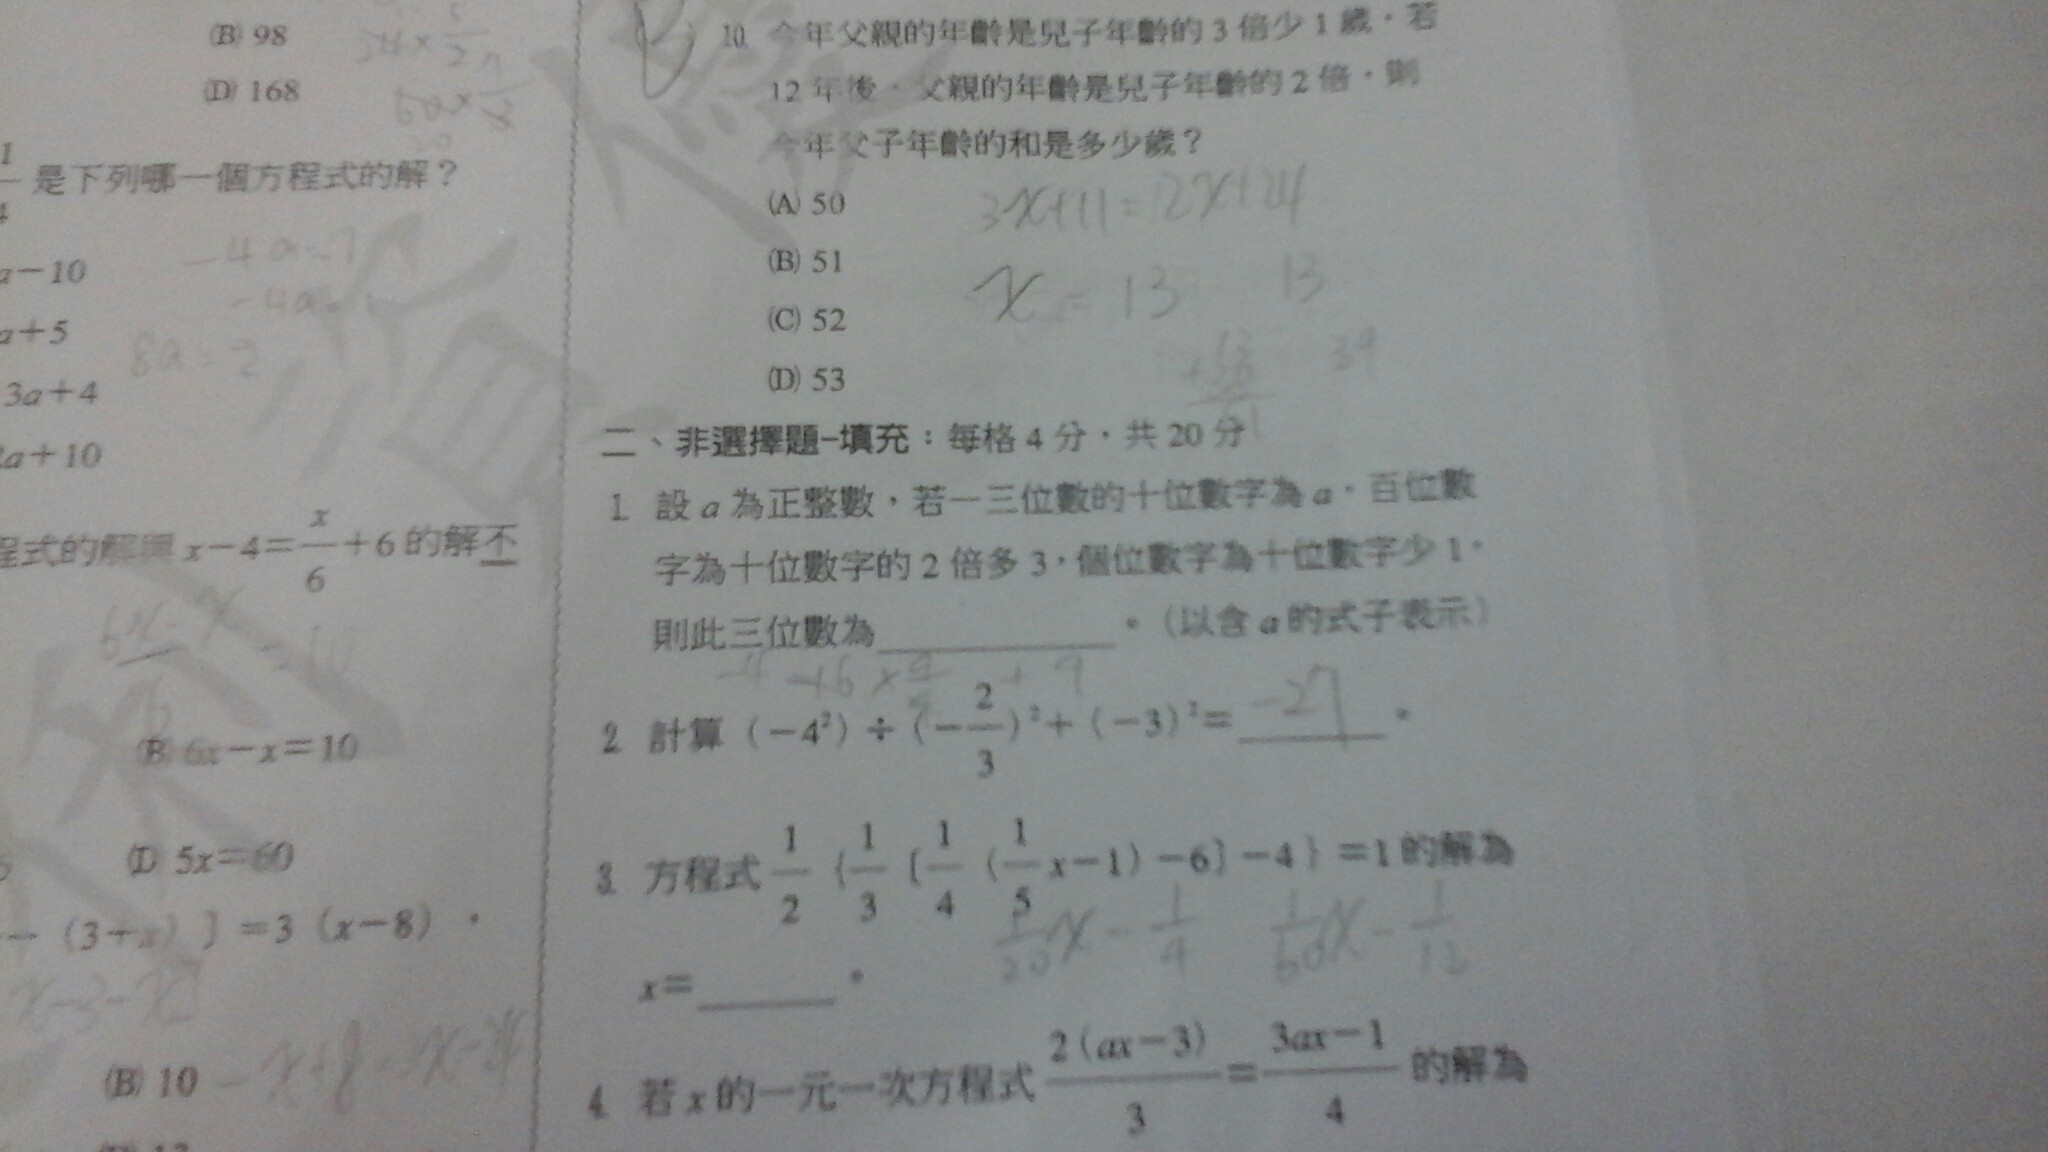 (B) 98
(D) 168
1
4 是下列哪一個方程式的解？
-4a=7
a－10
a＋5
8a=2
3a＋4
a＋10
程式的解與 x－4＝x/6＋6 的解不
6x-x/6 = 10
(B) 6x－x＝10
(D) 5x＝60
－（3＋x）］＝3（x－8）。
(B) 10
10. 今年父親的年齡是兒子年齡的 3 倍少 1 歲，若
12 年後，父親的年齡是兒子年齡的 2 倍，則
今年父子年齡的和是多少歲？
(A) 50
3x+11=2x+24
(B) 51
x = 13
13
(C) 52
39
(D) 53
二、非選擇題－填充：每格 4 分，共 20 分
1. 設 a 為正整數，若一三位數的十位數字為 a，百位數
字為十位數字的 2 倍多 3，個位數字為十位數字少 1，
則此三位數為＿＿＿＿＿。（以含 a 的式子表示）
2. 計算（－4²）÷（－2/3）²＋（－3）²＝ -27 。
3. 方程式 1/2｛1/3［1/4（1/5x－1）－6］－4｝＝1 的解為
1/20x - 1/4 1/60x - 1/12
x＝＿＿＿。
4. 若 x 的一元一次方程式 2（ax－3）/3＝3ax－1/4 的解為